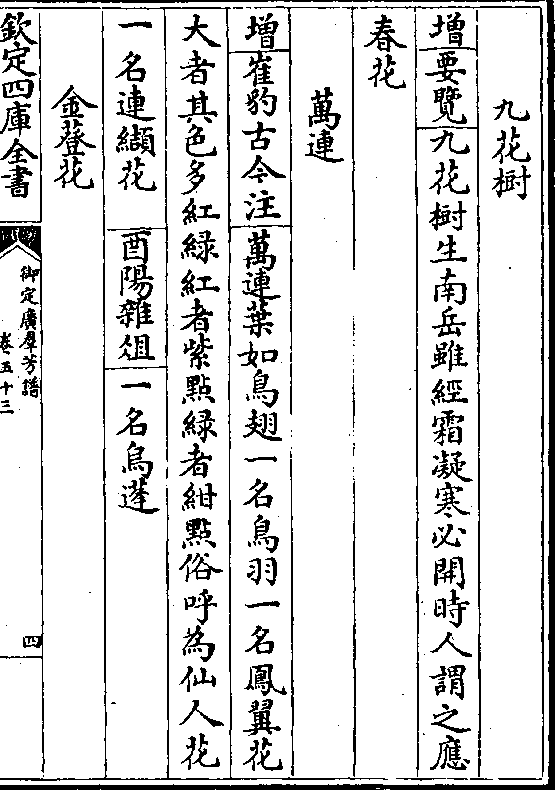 九花樹
增要覽九花樹生南岳雖經霜凝寒必開時人謂之應
春花
萬連
增崔豹古今注萬連葉如鳥翅一名鳥羽一名鳳翼花
大者其色多紅綠紅者紫點綠者紺點俗呼為仙人花
一名連纈花酉陽雜俎一名烏蓮
金簦花
欽定四庫全書
御定廣羣芳譜
卷五十三
四